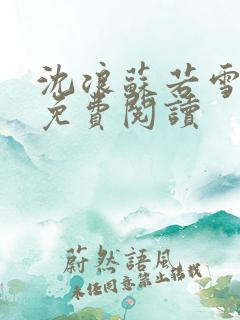 沈浪蘇若雪
免費閱讀
蔚然語風
未经同意禁止搭載